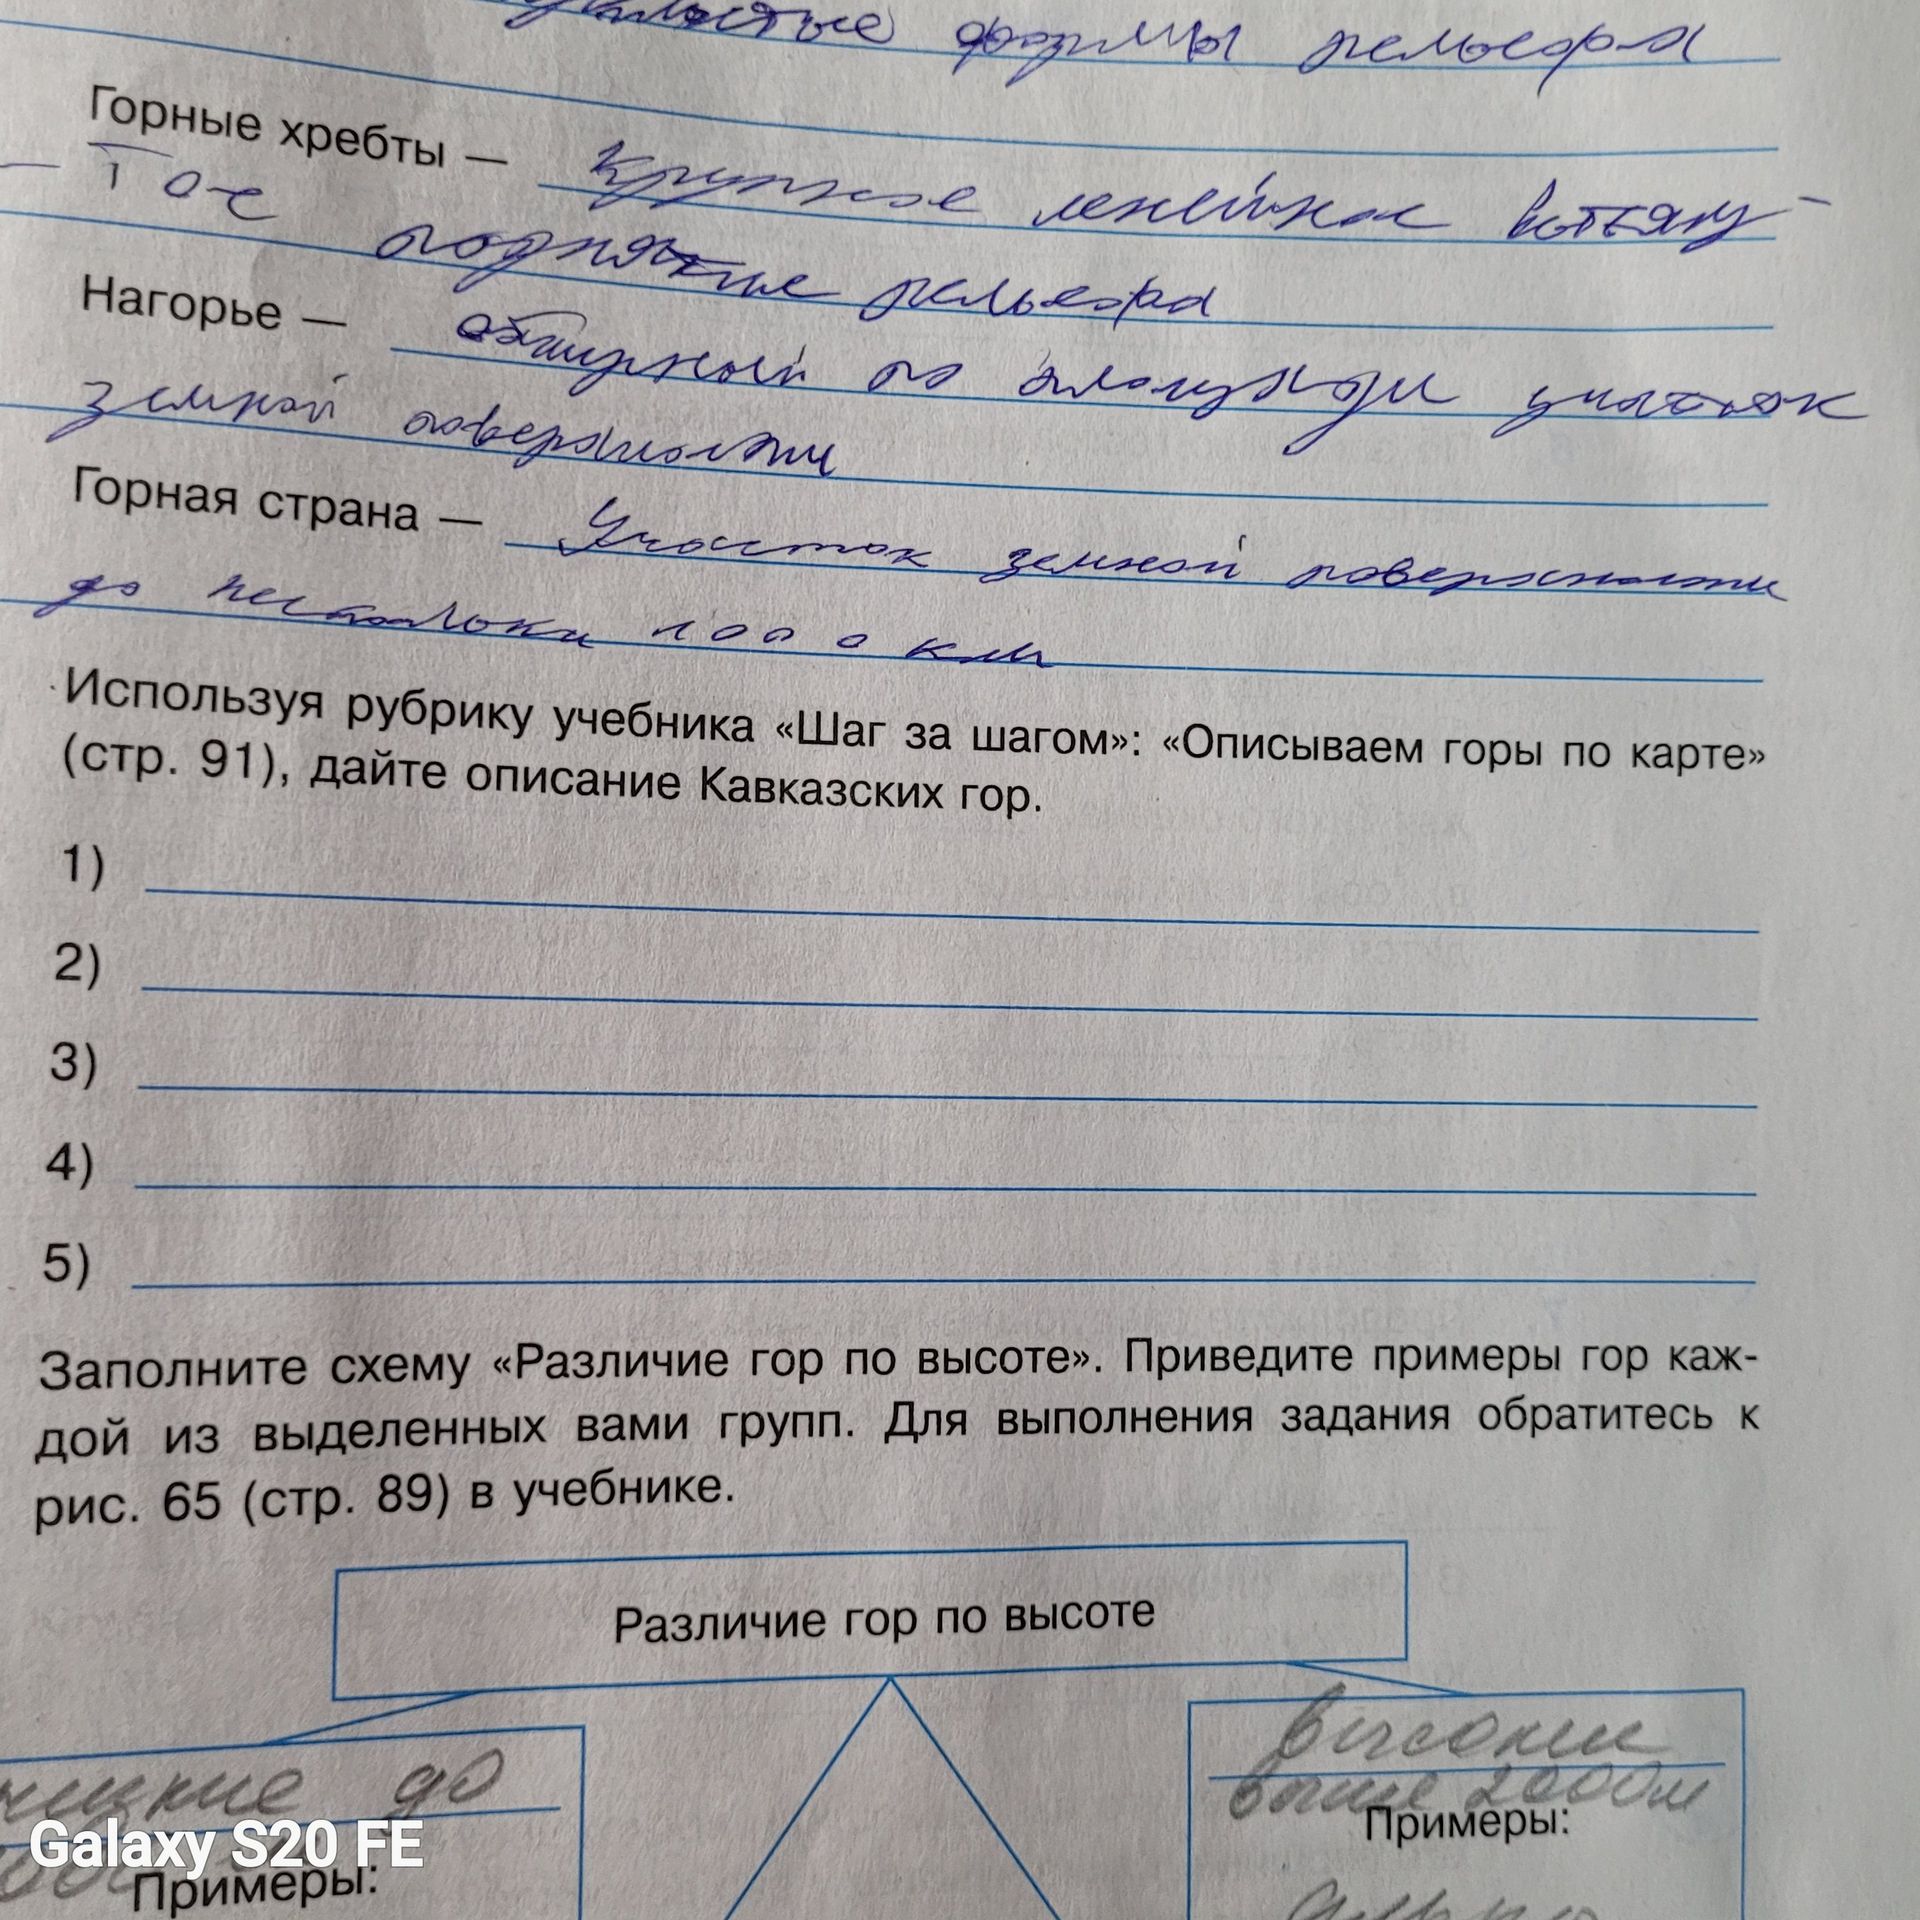 формы рельефа
Горные хребты — Крупное линейное вытяну-
-тое поднятие рельефа
Нагорье — обширный по площади участок
земной поверхности
Горная страна — Участок земной поверхности
до несколько 1000 км
Используя рубрику учебника «Шаг за шагом»: «Описываем горы по карте»
(стр. 91), дайте описание Кавказских гор.
1)
2)
3)
4)
5)
Заполните схему «Различие гор по высоте». Приведите примеры гор каж-
дой из выделенных вами групп. Для выполнения задания обратитесь к
рис. 65 (стр. 89) в учебнике.
Различие гор по высоте
до
высокие
выше 2000м
Примеры:
Примеры:
Galaxy S20 FE